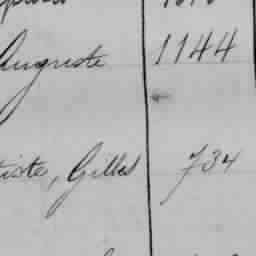 Auguste 1144
tiste, Gilles 734